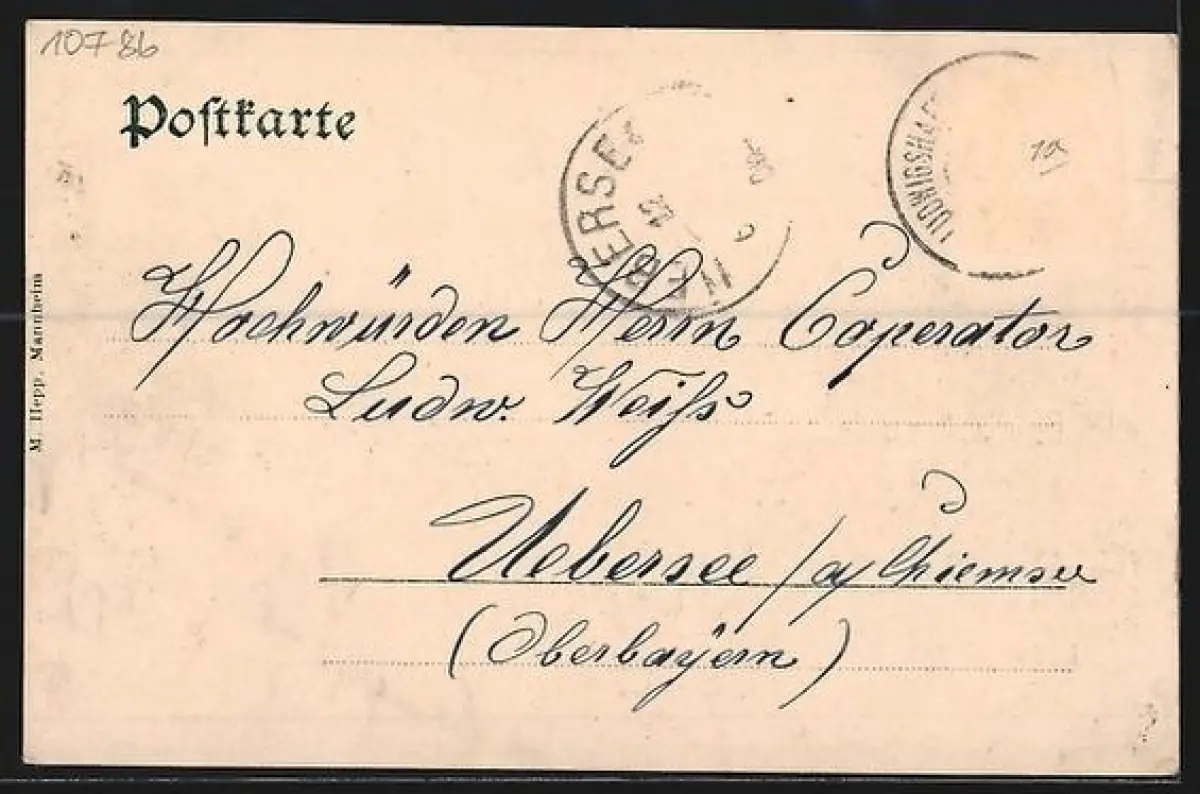 10786
Postkarte
UEBERSEE
LUDWIGSHAF
M. Hepp, Mannheim
Hochwürden Herrn Cóperator
Ludw. Weifs
Uebersee /a Chiemsee
(Oberbayern)